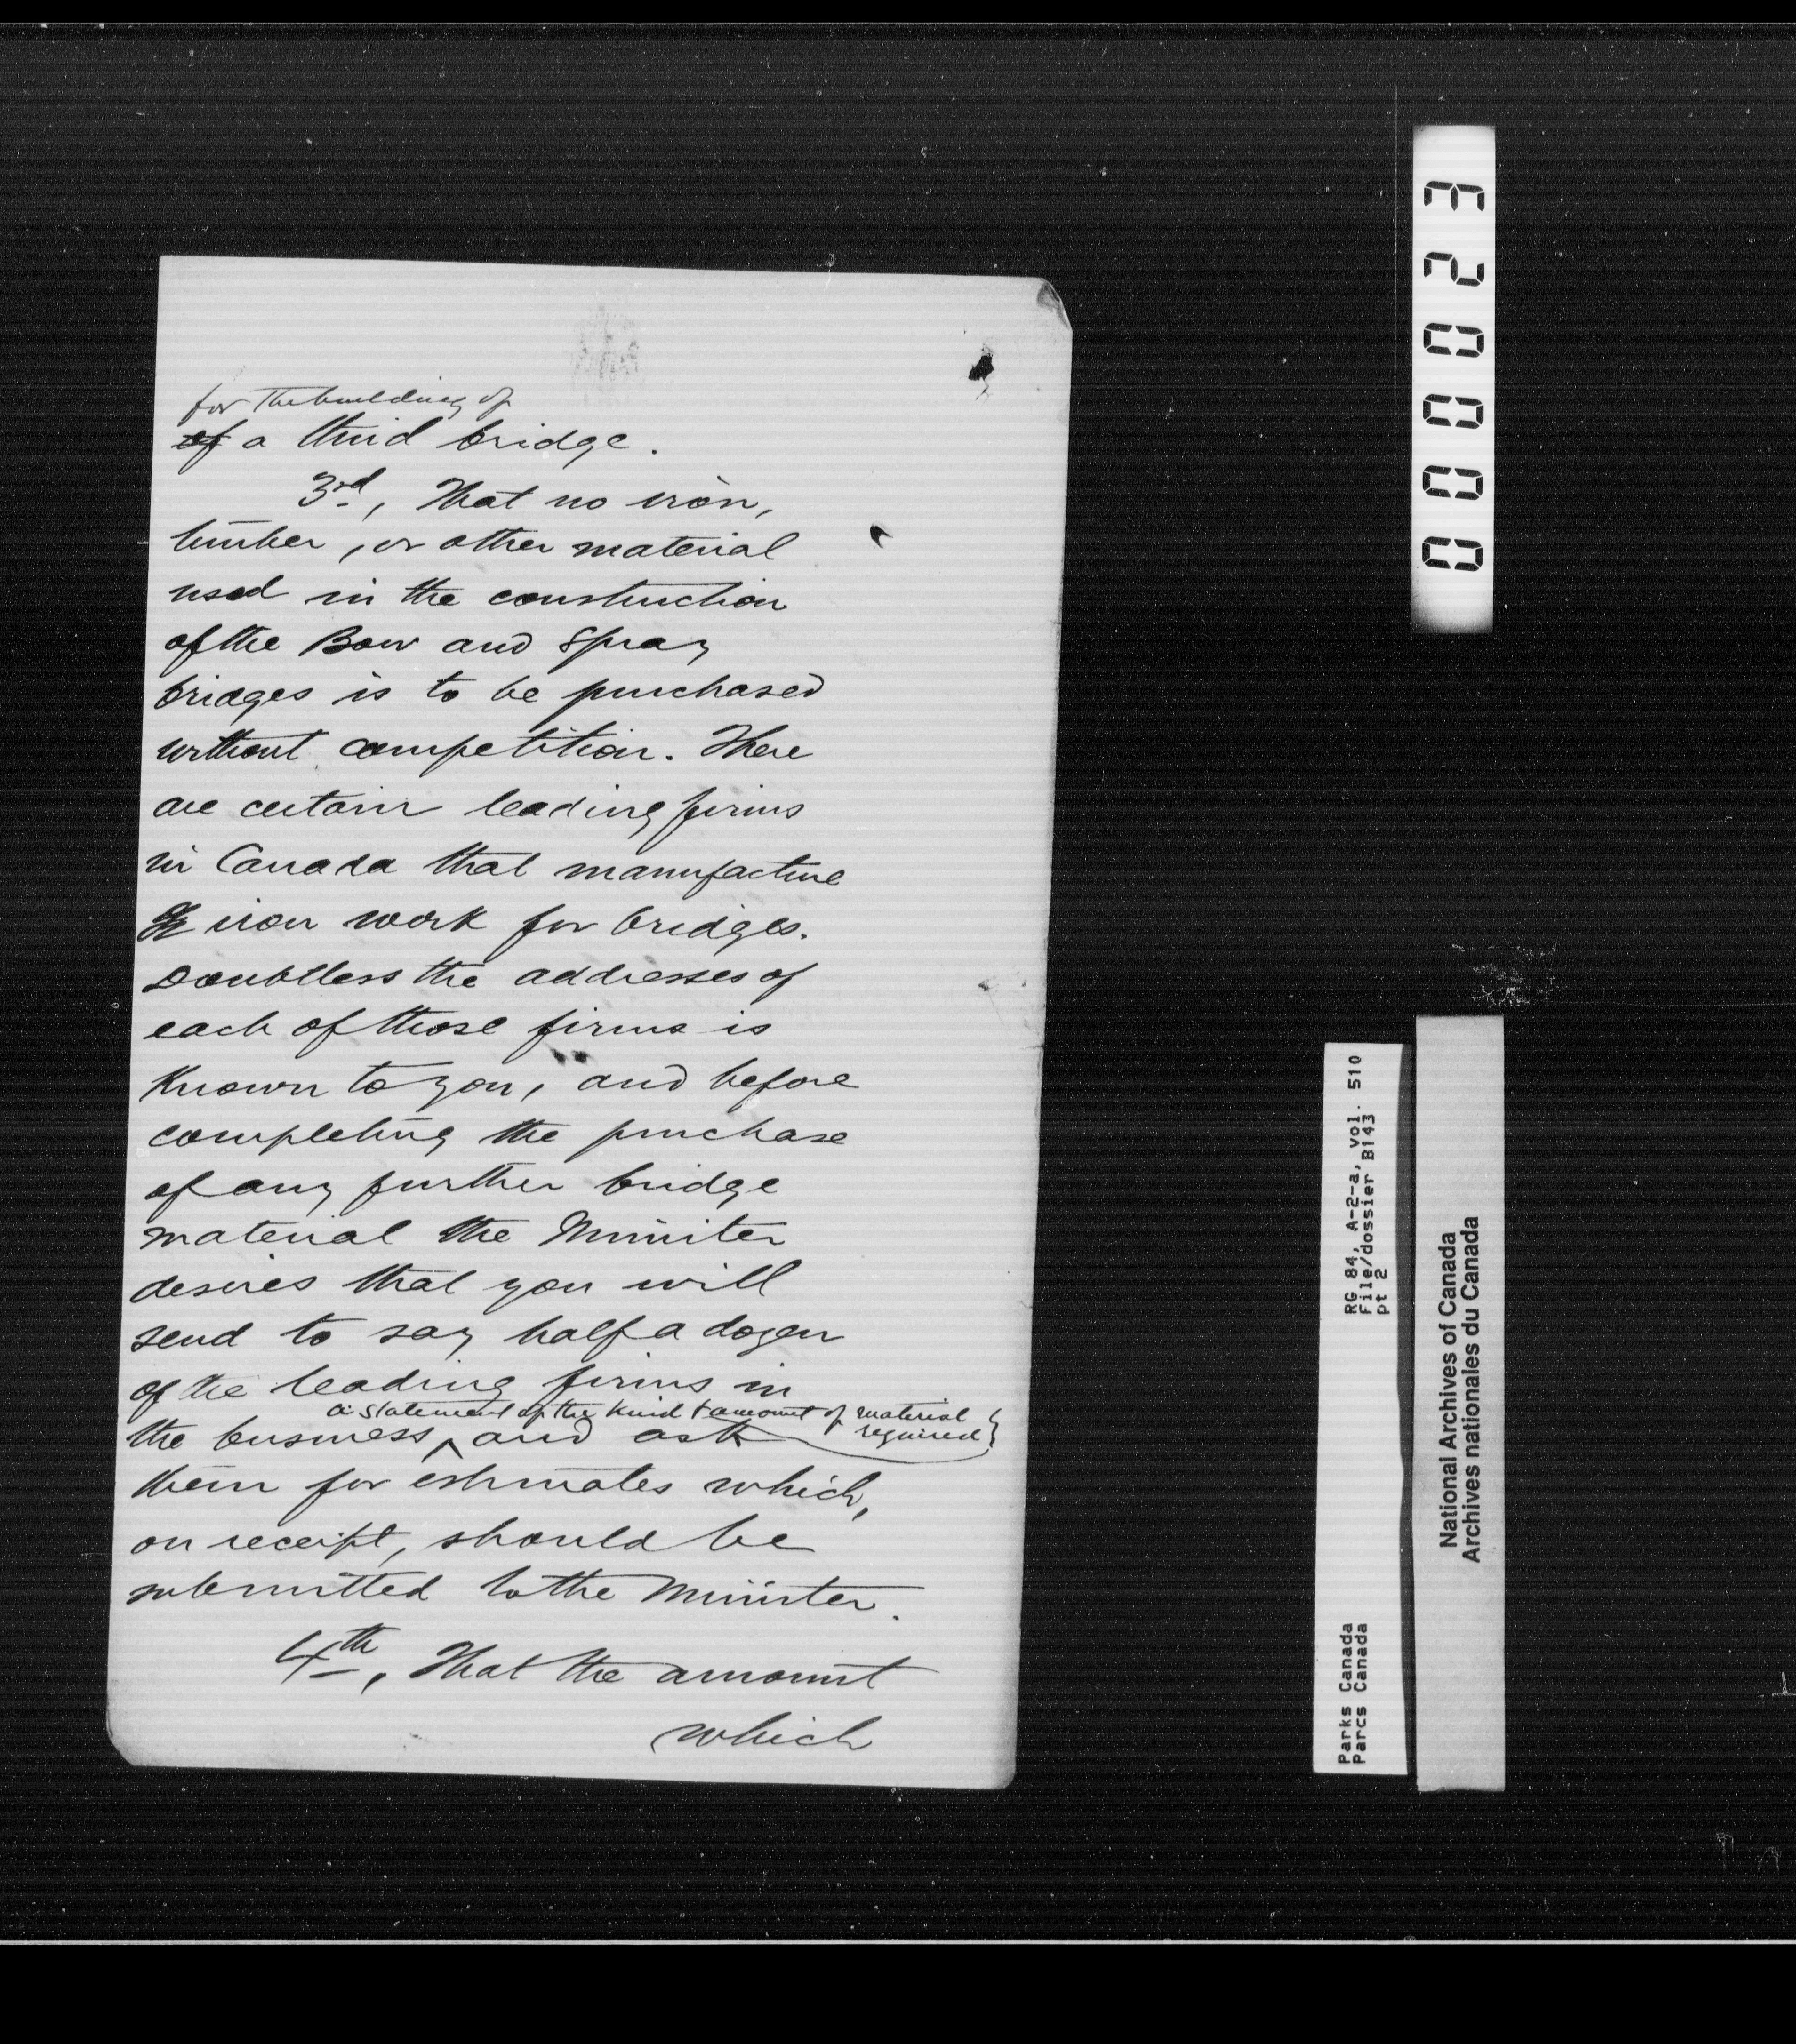 for the building of
of a third bridge.
3rd, That no iron,
timber, or other material
used in the construction
of the Bow and Spray
bridges is to be purchased
without competition. There
are certain leading firms
in Canada that manufacture
iron work for bridges.
Doubtless the addresses of
each of those firms is
known to you, and before
completing the purchase
of any further bridge
material the Minister
desires that you will
send to say half a dozen
of the leading firms in
a statement of the kind & amount of material
required
the business, and ask
them for estimates which,
on receipt, should be
submitted to the Minister.
4th, That the amount
which
000023
RG 84, A-2-a, vol. 510
File/dossier B143
pt 2
Parks Canada
Parcs Canada
National Archives of Canada
Archives nationales du Canada